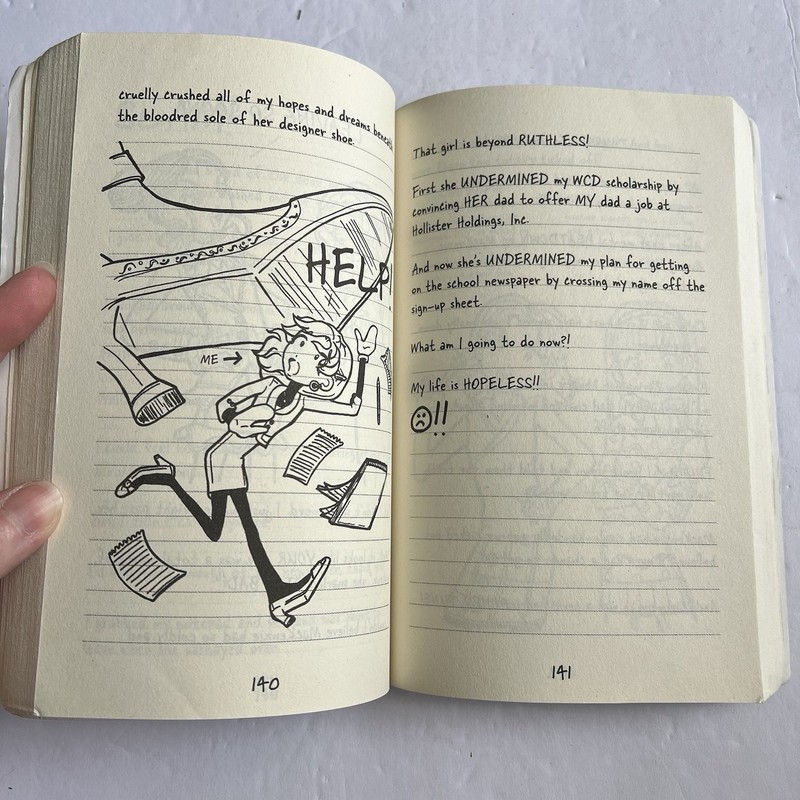 cruelly crushed all of my hopes and dreams beneath
the bloodred sole of her designer shoe.
HELP!
ME →
140
That girl is beyond RUTHLESS!
First she UNDERMINED my WCD scholarship by
convincing HER dad to offer MY dad a job at
Hollister Holdings, Inc.
And now she's UNDERMINED my plan for getting
on the school newspaper by crossing my name off the
sign-up sheet.
What am I going to do now?!
My life is HOPELESS!!
☹!!
141